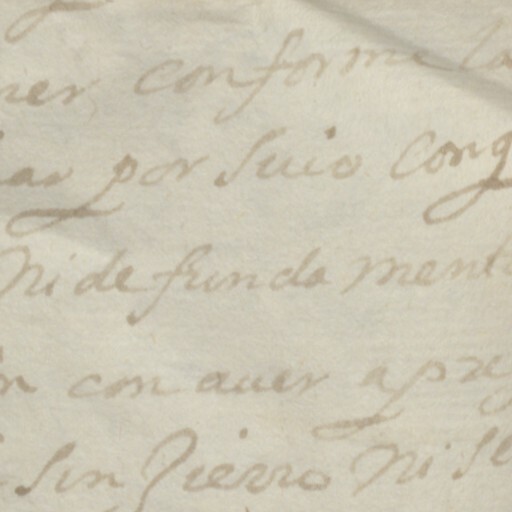 ner conforme la
ar por suio Conq
Ni de funda ment
n con auer apre
sin Zierro Ni se